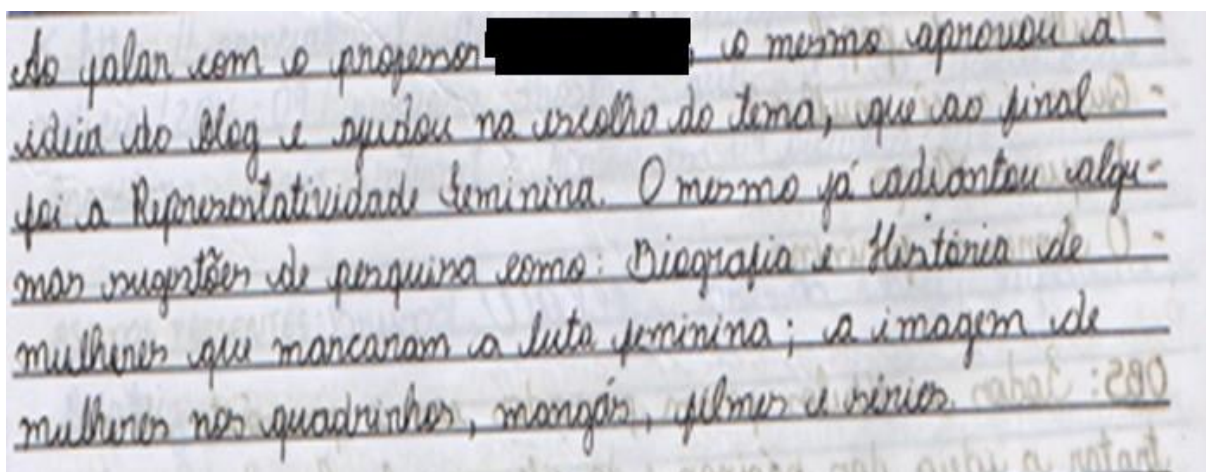 Ao falar com o professor , o mesmo aprovou a
ideia do Blog e ajudou na escolha do tema, que ao final
foi a Representatividade Feminina. O mesmo já adiantou algu-
mas sugestões de pesquisa como: Biografia e História de
mulheres que marcaram a luta feminina; a imagem de
mulheres nos quadrinhos, mangás, filmes e séries.